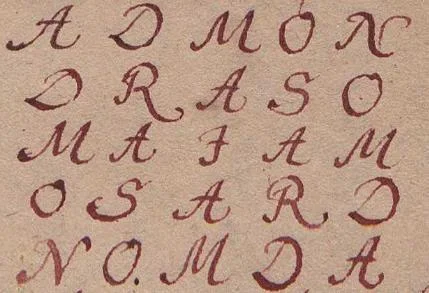 A D M O N
D R A S O
M A J A M
O S A R D
N O. M D A